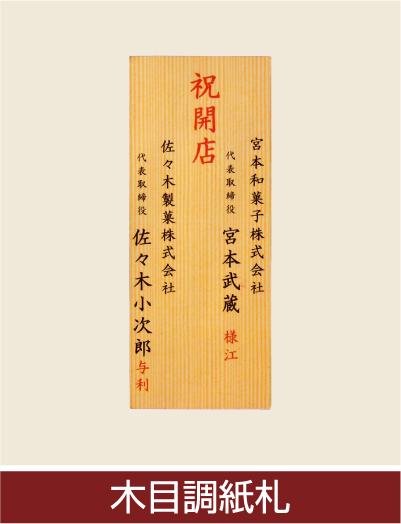 祝開店
宮本和菓子株式会社
代表取締役 宮本武蔵 様江
佐々木製菓株式会社
代表取締役 佐々木小次郎 与利
木目調紙札